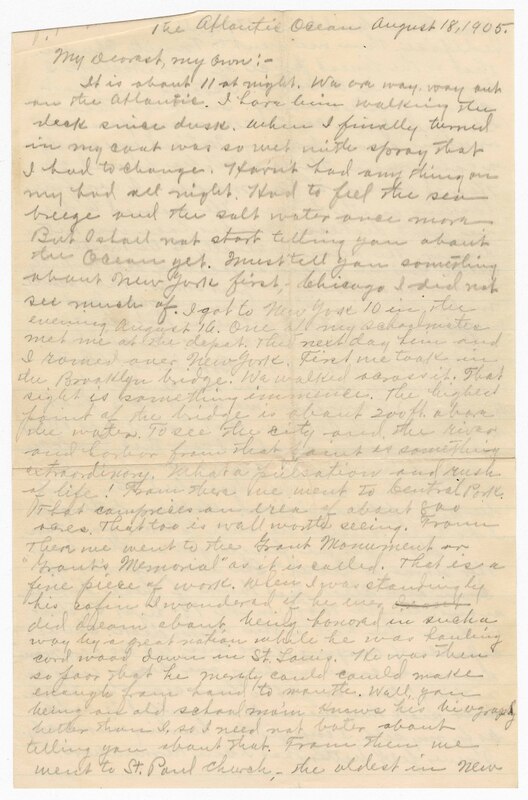 The Atlantic Ocean August 18, 1905.
My Dearest, my own:-
It is about 11 at night. We are way, way out
on the Atlantic. I have been walking the
deck since dusk. When I finally turned
in my coat was so wet with spray that
I had to change. Havn't had any thing on
my head all night. Had to feel the sea
breeze and the salt water once more
But I shall not start telling you about
the Ocean yet. Must tell you something
about New York first,- Chicago I did not
see much of. I got to New York 10 in the
evening August 16. One of my schoolmates
met me at the depot. The next day him and
I roamed over New York. First we took in
the Brooklyn bridge. We walked across it. That
sight is something immence. The highest
point of the bridge is about 200 ft. above
the water. To see the city and the river
and harbor from that point is something
extraordinary. What a pulsation and rush
of life! From there we went to Central Park.
That comprises an area of about 800
acres. That too is well worth seeing. From
There we went to the Grant Monument or
"Grant's Memorial" as it is called. That is a
fine piece of work. When I was standing by
his cofin I wondered if he ever
did dream about being honored in such a
way by a great nation while he was hauling
cord wood down in St. Louis. He was then
so poor that he merely could could make
enough from hand to mouth. Well, you
being an old school ma'm knows his biography
better than I, so I need not bother about
telling you about that. From then we
went to St. Paul church,- the oldest in New